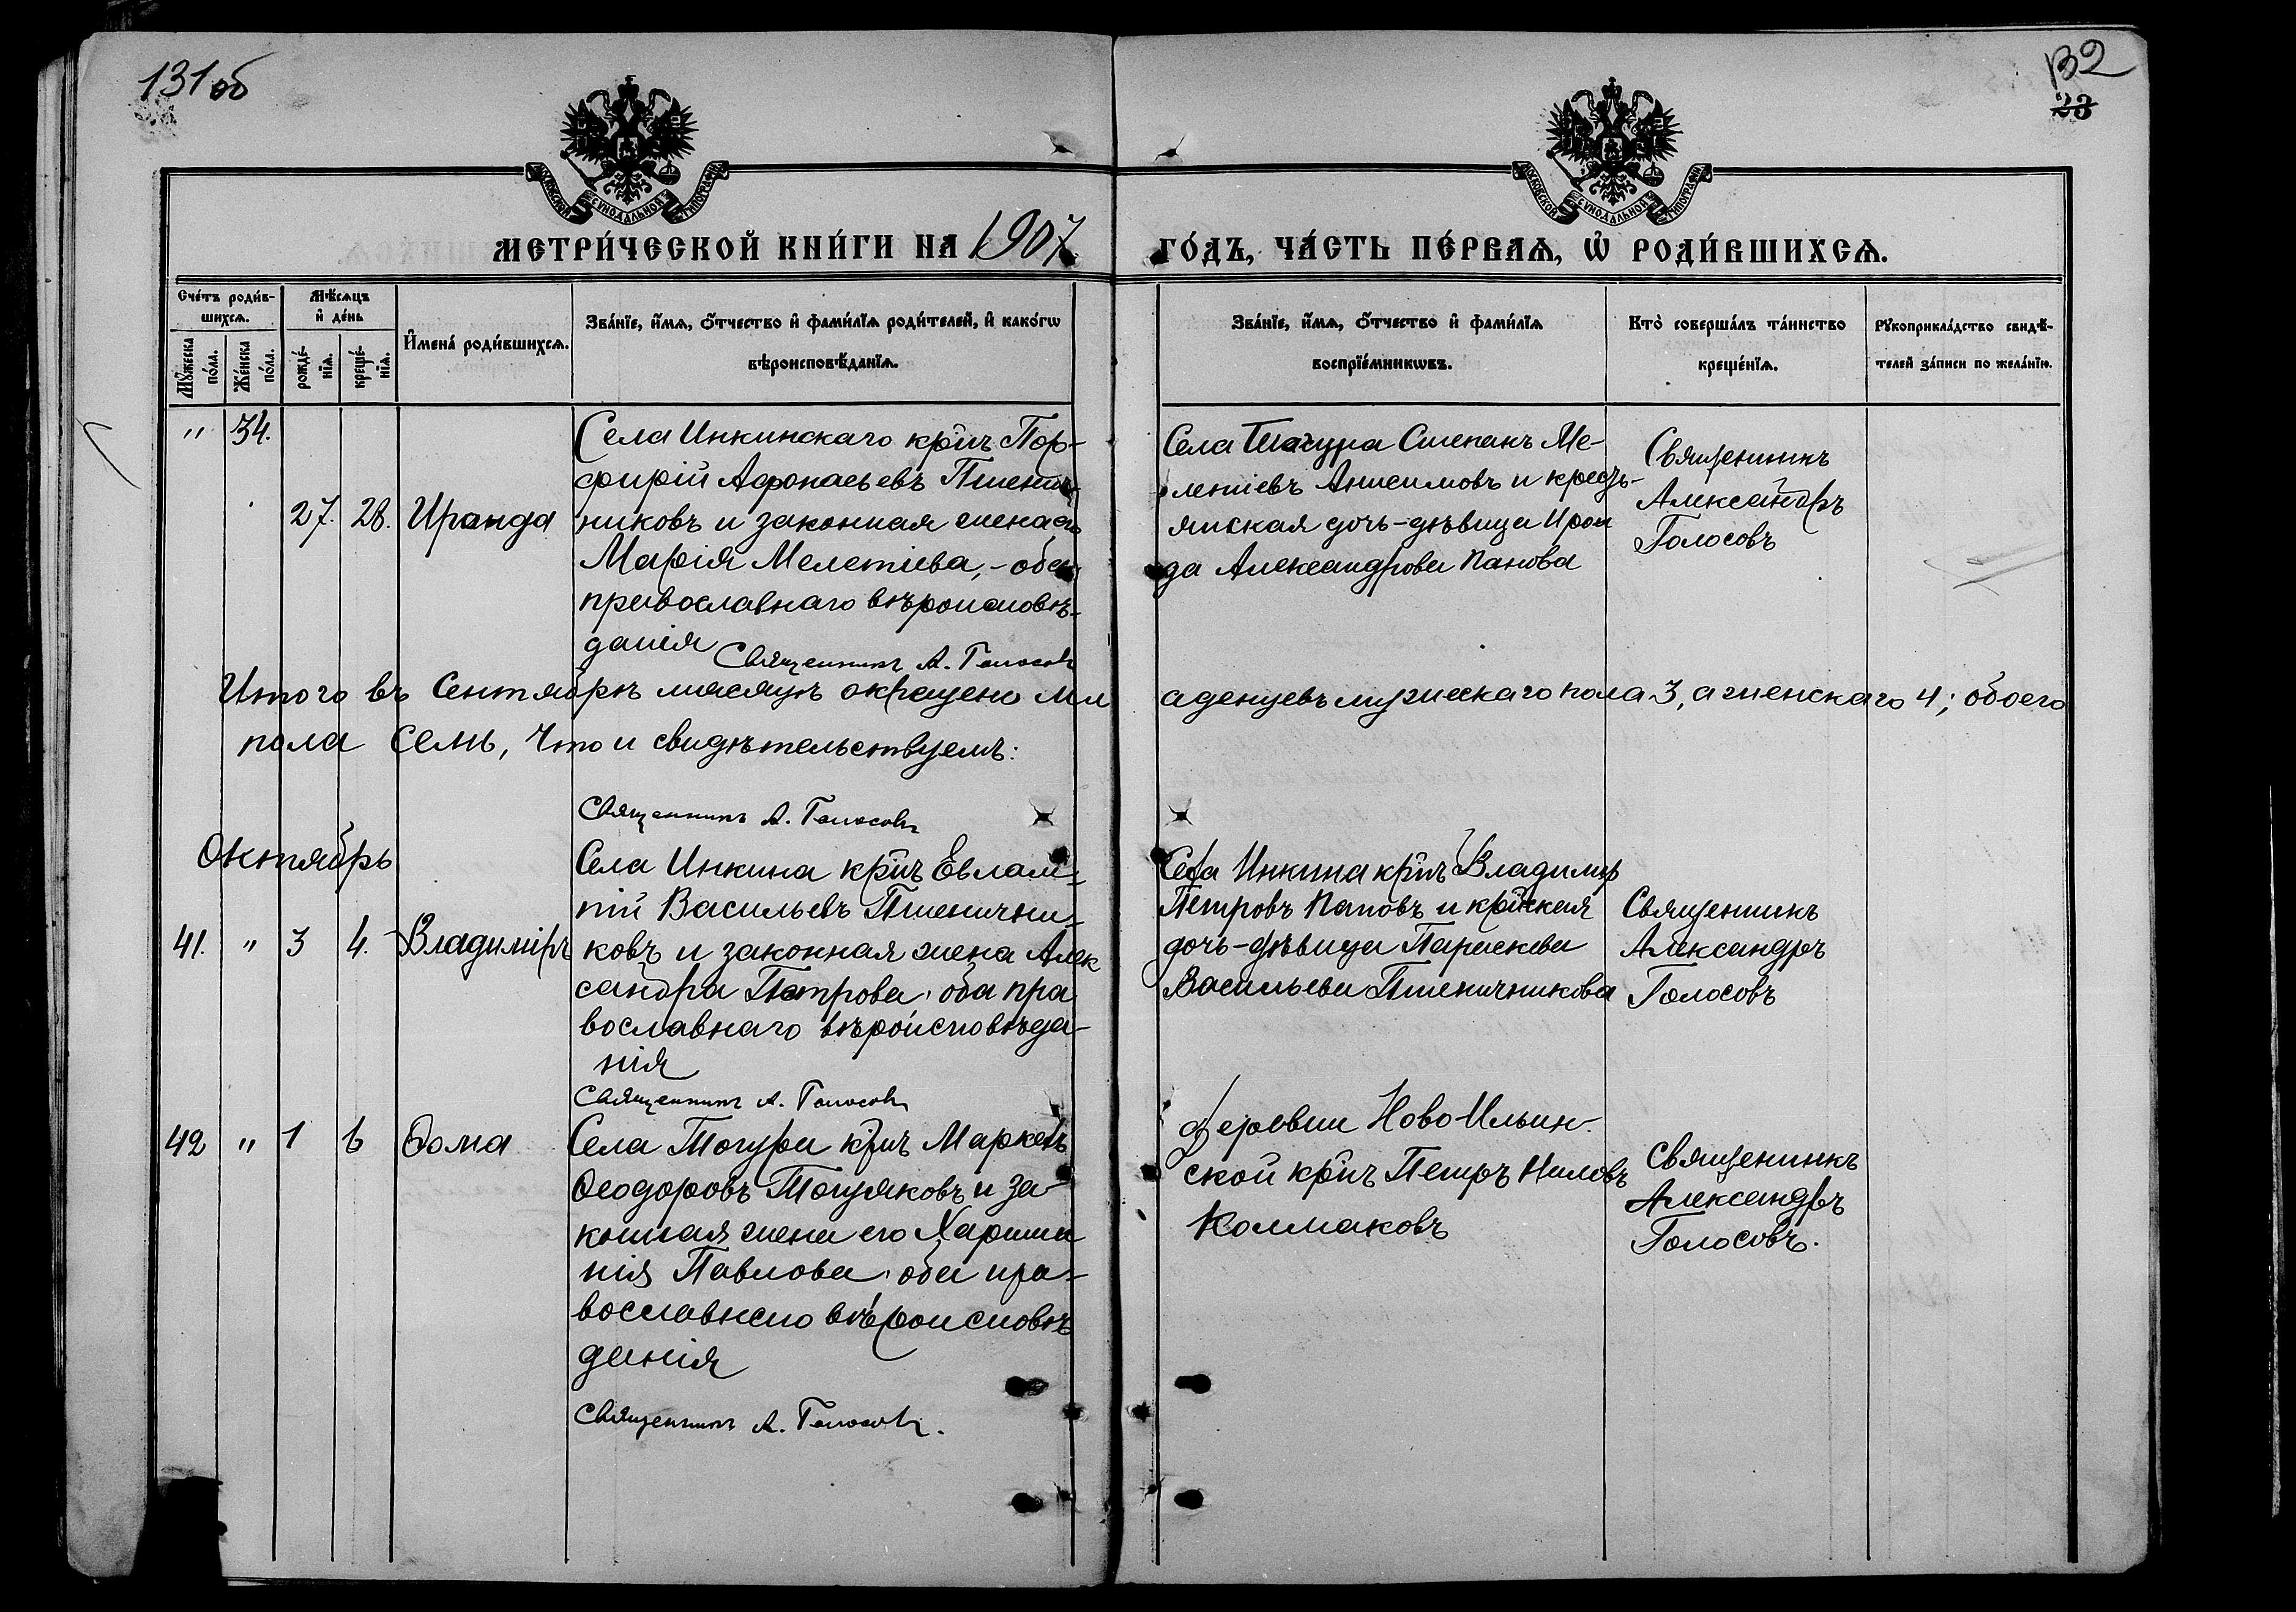 131об
132
23
МОСКОВСКОЙ СѴНОДАЛЬНОЙ ТИПОГРАФІИ
МОСКОВСКОЙ СѴНОДАЛЬНОЙ ТИПОГРАФІИ
МЕТРИ́ЧЕСКОЙ КНИ́ГИ НА 1907 ГО́ДЪ, ЧА́СТЬ ПЕ́РВАѦ, Ѡ҆ РОДИ́ВШИХСѦ.
Сче́тъ роди́в-
шихсѧ.
Мꙋ́жеска
по́ла.
Же́нска
по́ла.
Мѣ́сѧцъ
и҆ де́нь
рожде́-
нїѧ.
креще́-
нїѧ.
И҆мена̀ роди́вшихсѧ.
Зва́нїе, и҆́мѧ, ѻ҆́тчество и҆ фами́лїѧ роди́телей, и҆ како́гѡ
вѣроисповѣ́данїѧ.
Зва́нїе, и҆́мѧ, ѻ҆́тчество и҆ фами́лїѧ
воспрїе́мникѡвъ.
Кто̀ соверша́лъ та́инство
креще́нїѧ.
Рꙋкоприкла́дство свидѣ́-
телей за́писи по жела́нїю.
" 34.
27. 28. Ираида
Села Инкинскаго кр̃нъ Пор-
фирій Афонасьевъ Пшенич-
никовъ и законная жена его
Марѳія Мелетіева, - оба
православнаго вѣроисповѣ-
данія
Священникъ А. Голосовъ
Села Тогура Степанъ Ме-
летіевъ Анисимовъ и кресть-
янская дочь-дѣвица Ираи
да Александрова Панова
Священникъ
Александръ
Голосовъ
Итого въ Сентябрѣ мѣсяцѣ окрещено мл аденцевъ мужескаго пола 3, а женскаго 4; обоего
пола семь, что и свидѣтельствуемъ:
Священникъ А. Голосовъ
Октябрь
41. " 3 4. Владиміръ
Села Инкина кр̃нъ Евлам-
пій Васильевъ Пшенични-
ковъ и законная жена Алек
сандра Петрова, оба пра
вославнаго вѣроисповѣда-
нія
Священникъ А. Голосовъ
Села Инкина кр̃нъ Владиміръ
Петровъ Пановъ и кр̃нская
дочь-дѣвица Параскева
Васильева Пшеничникова
Священникъ
Александръ
Голосовъ
42 " 1 6 Ѳома
Села Тогура кр̃нъ Маркелъ
Ѳеодоровъ Тогуляковъ и за-
конная жена его Харити
нія Павлова, оба пра-
вославнаго вѣроисповѣ
данія
Священникъ А. Голосовъ.
Деревни Ново-Ильин-
ской кр̃нъ Петръ Ниловъ
Колмаковъ
Священникъ
Александръ
Голосовъ.